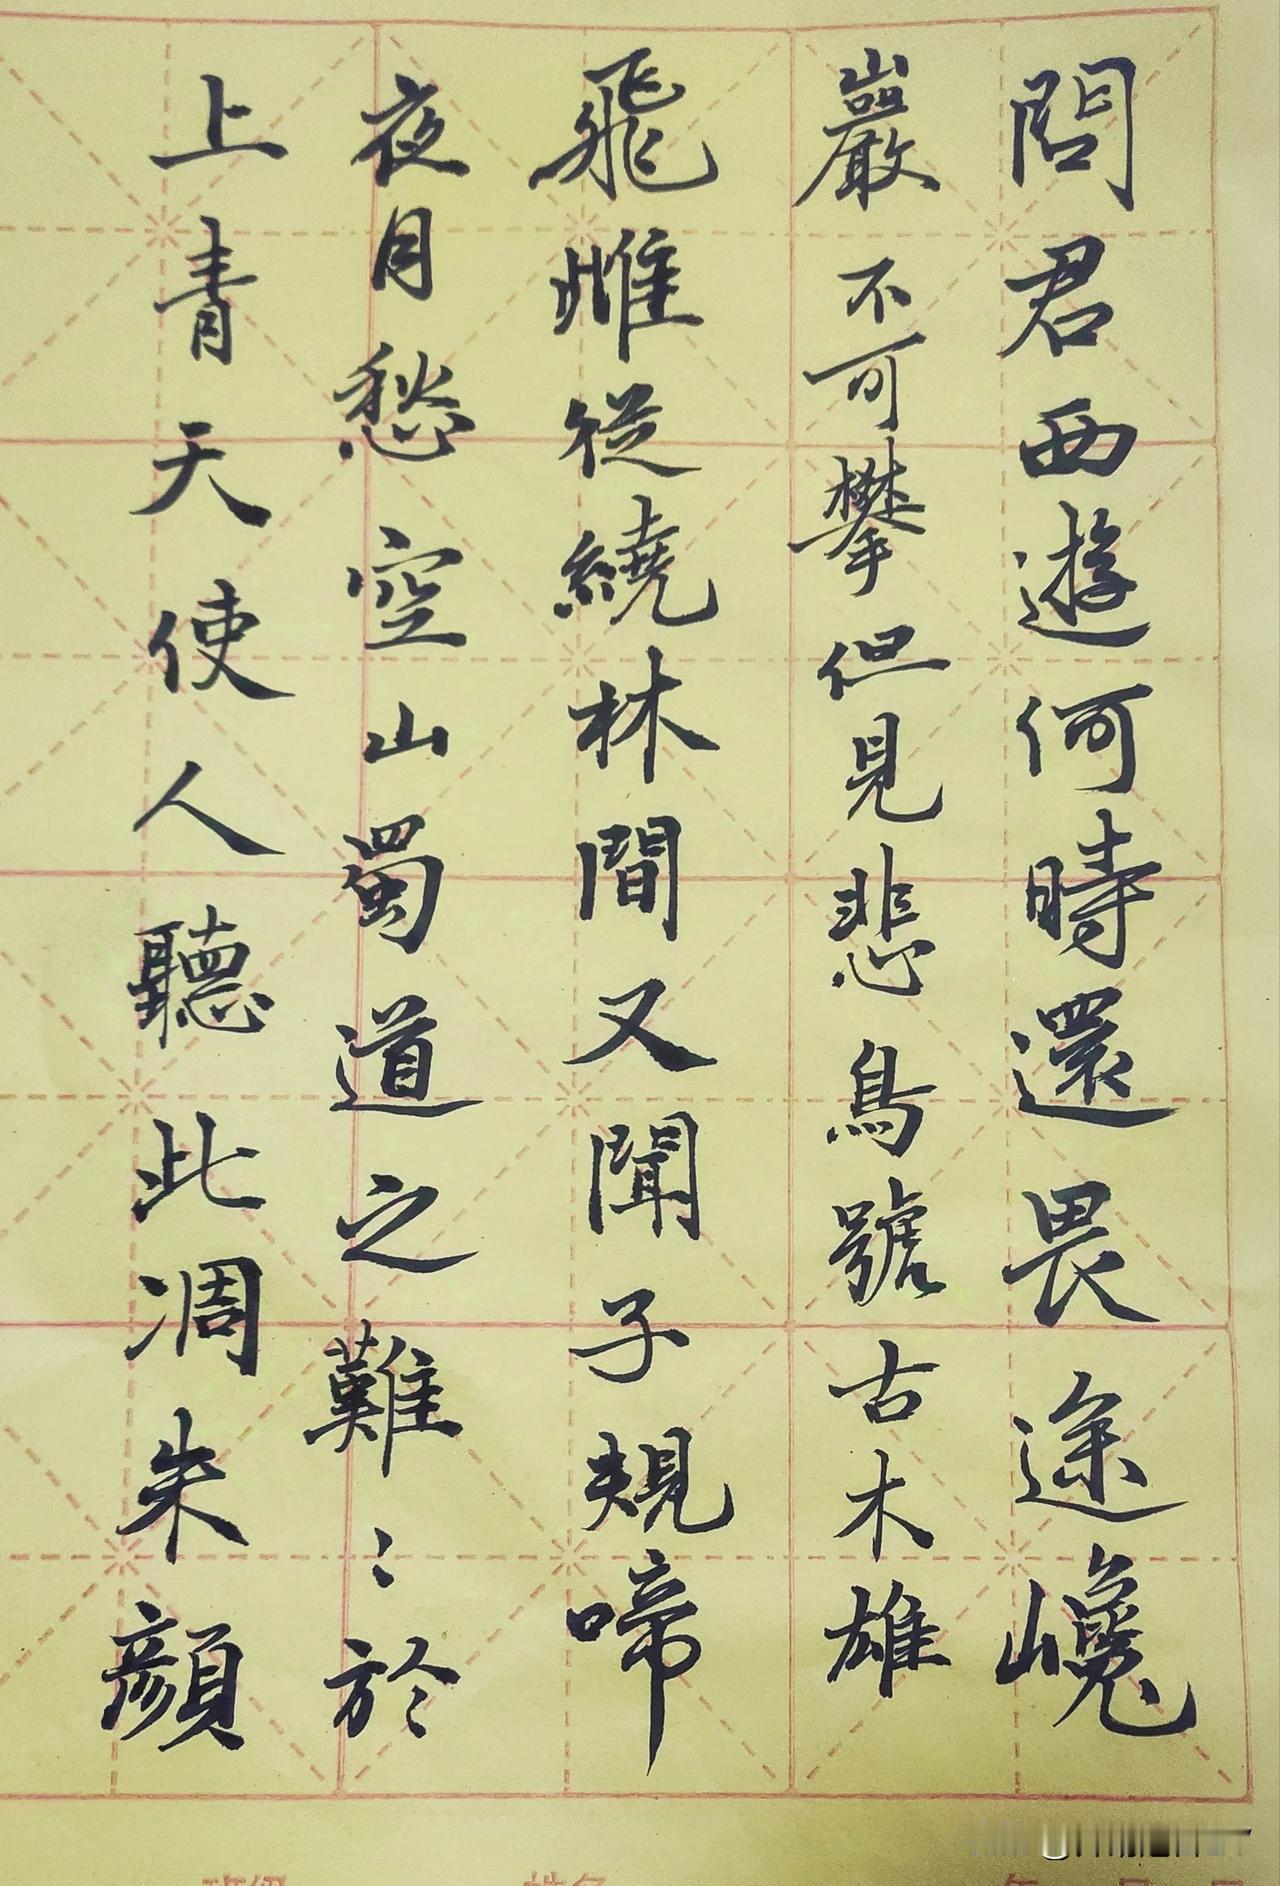 問君西遊何時還畏途巉
巖不可攀但見悲鳥號古木雄
飛雌從繞林間又聞子規啼
夜月愁空山蜀道之難〻於
上青天使人聽此凋朱顔